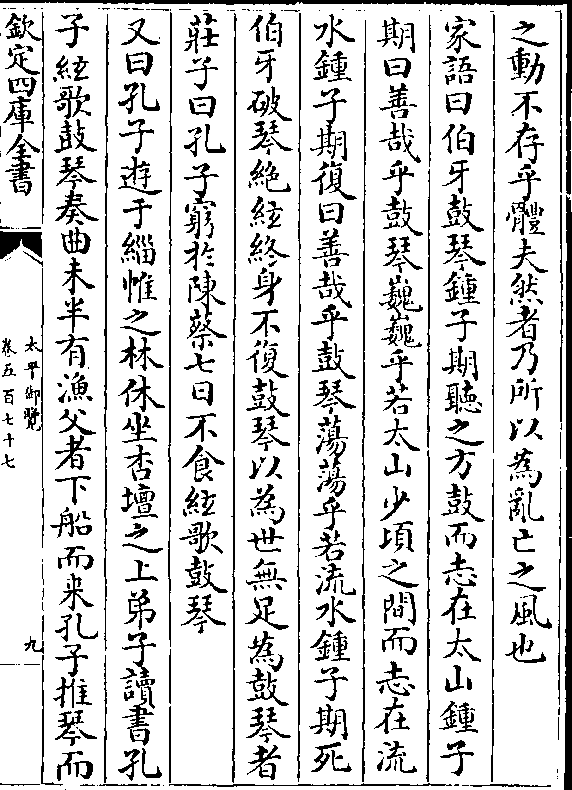 之動不存乎體夫然者乃所以為亂亡之風也
家語曰伯牙鼓琴鍾子期聽之方鼓而志在太山鍾子
期曰善哉乎鼓琴巍巍乎若太山少頃之間而志在流
水鍾子期復曰善哉乎鼓琴蕩蕩乎若流水鍾子期死
伯牙破琴絶絃終身不復鼓琴以為世無足為鼓琴者
莊子曰孔子窮於陳蔡七日不食絃歌鼓琴
又曰孔子遊于緇帷之林休坐杏壇之上弟子讀書孔
子絃歌鼓琴奏曲未半有漁父者下船而来孔子推琴而
欽定四庫全書
太平御覽
卷五百七十七
九